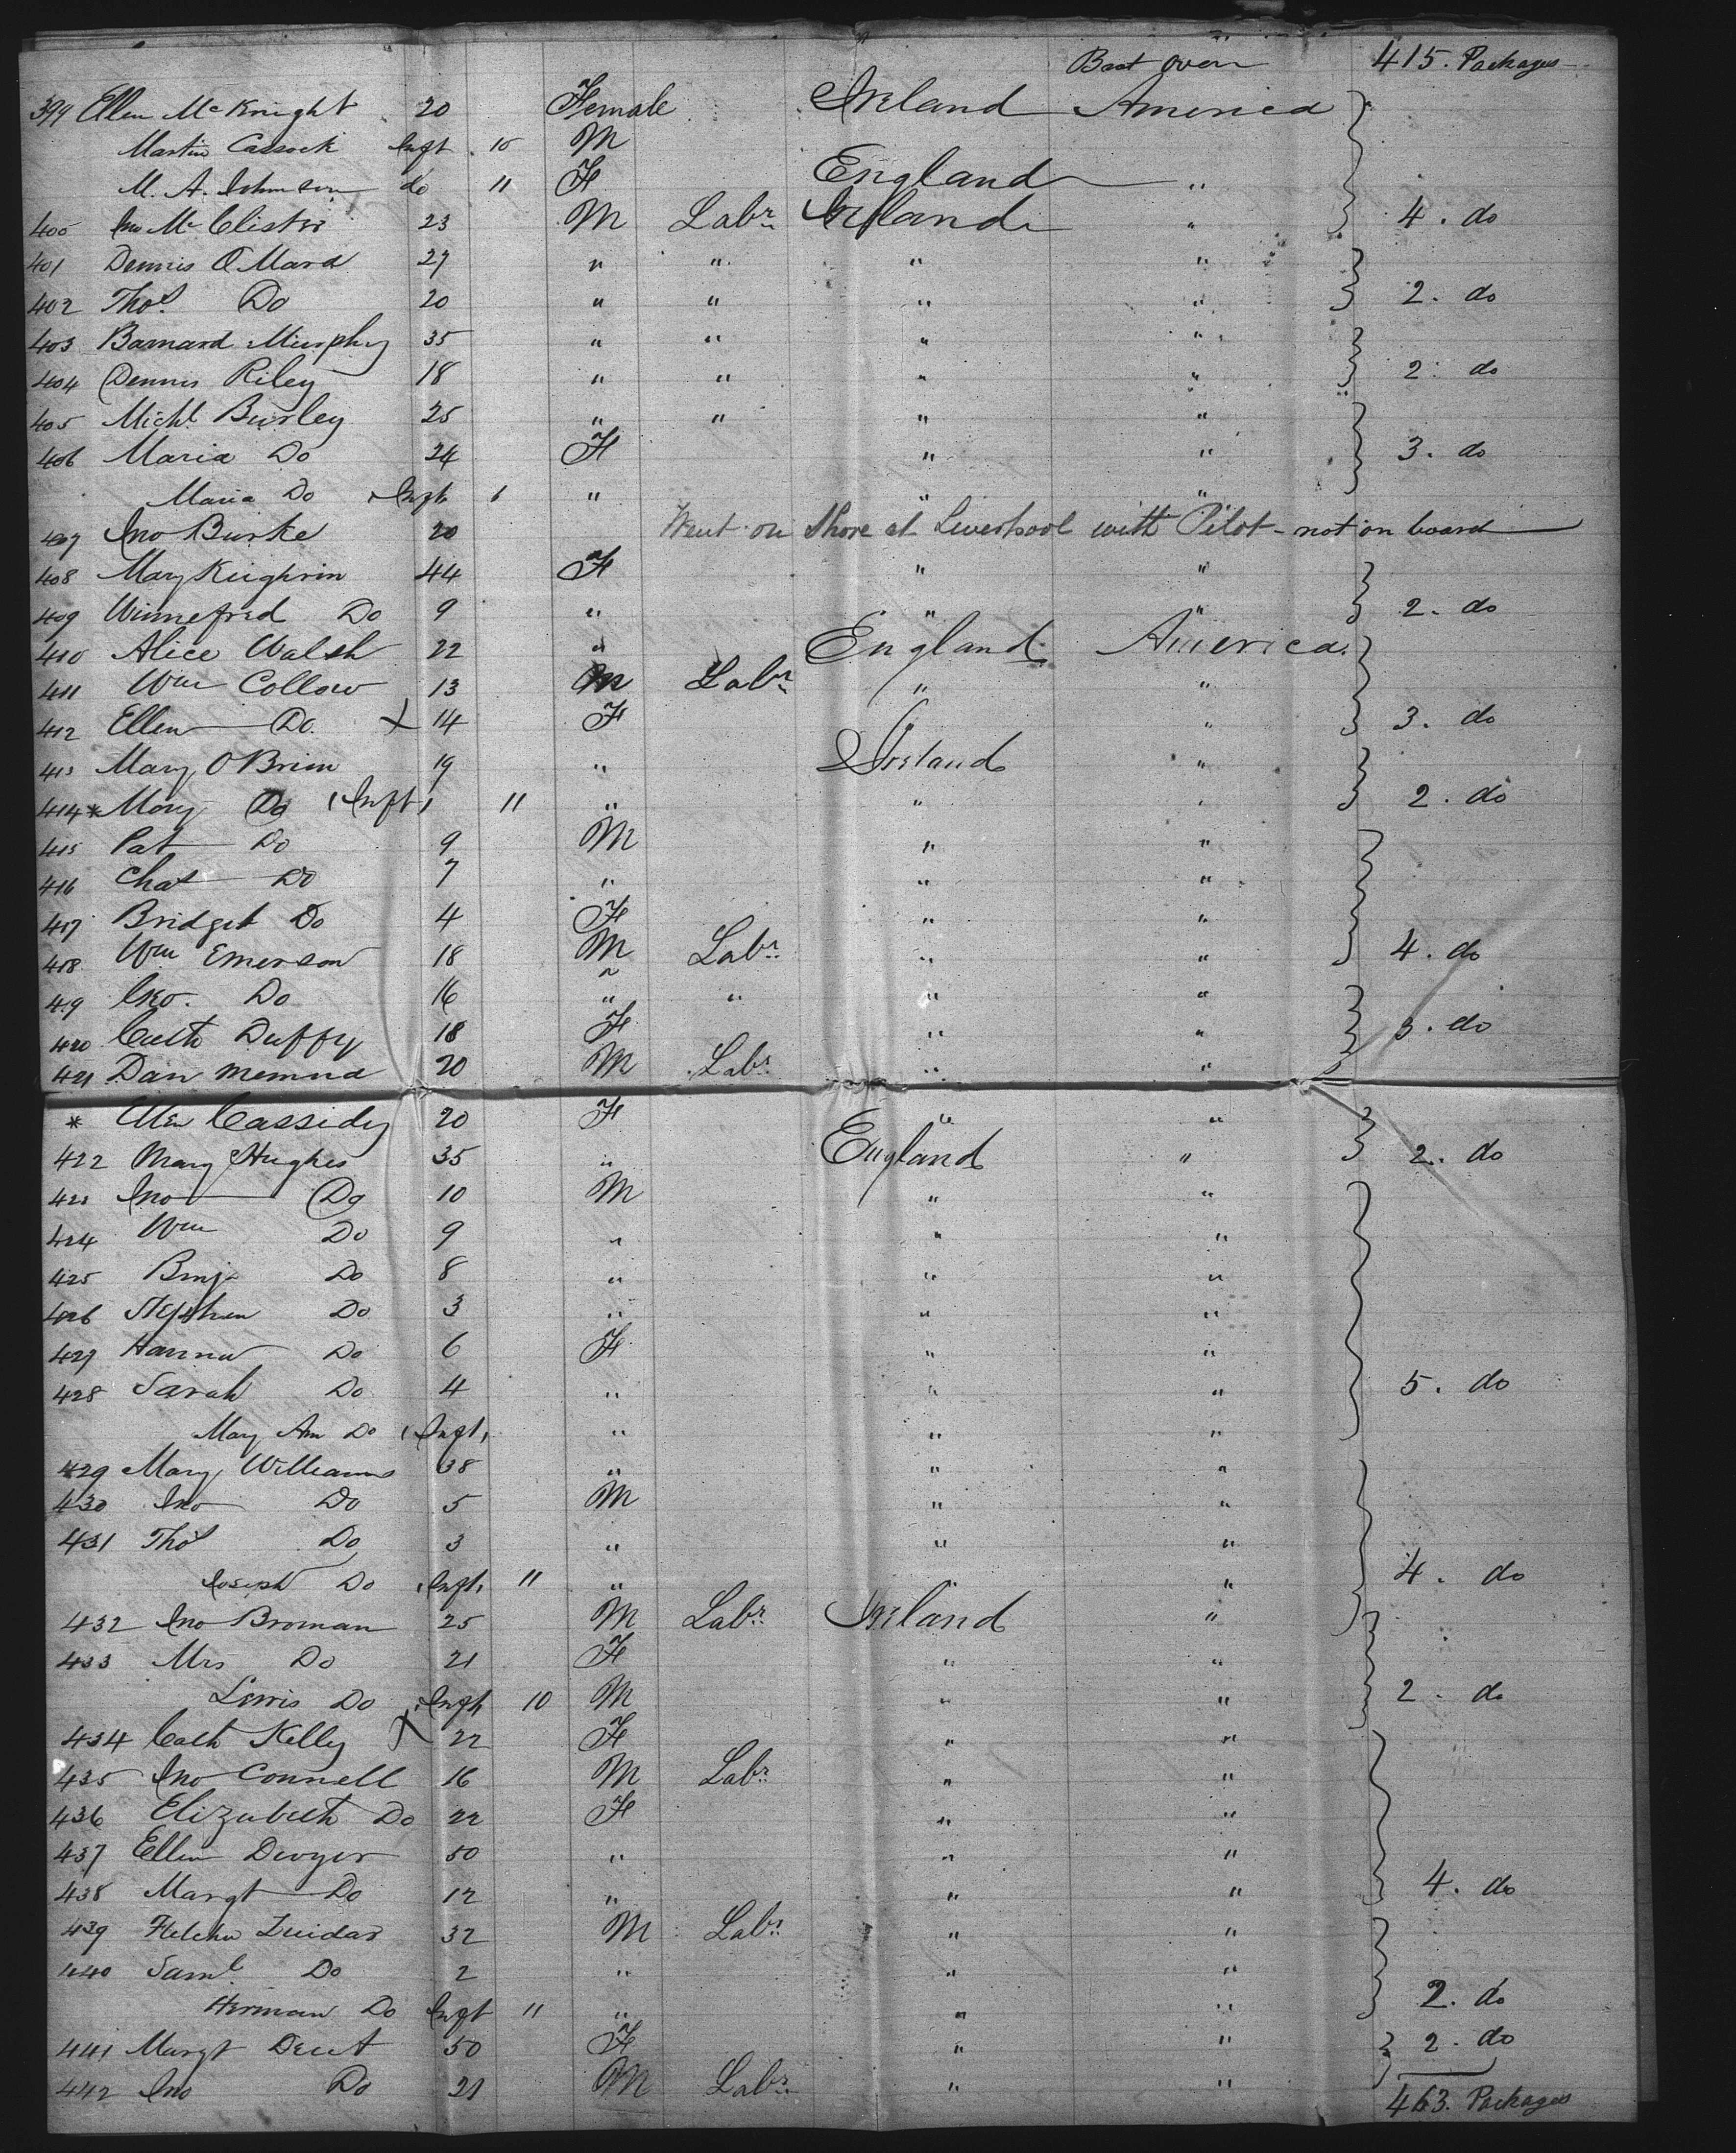 Brot over 415. Packages
399 Ellen McKnight 20 Female Ireland America
Martin Cassock Inft 10 M
M. A. Johnson do 11 F England "
400 Jno McClister 23 M Labr Ireland " 4. do
401 Dennis O Mara 27 " " " "
402 Thos. Do 20 " " " " 2. do
403 Barnard Murphy 35 " " " "
404 Dennis Riley 18 " " " " 2. do
405 Michl Burley 25 " " " "
406 Maria Do 24 F " " 3. do
Maria Do Inft 6 " " "
407 Jno Burke 20 Went on Shore at Liverpool with Pilot - not on board
408 Mary Keighrin 44 F " "
409 Winnefred Do 9 " " " 2. do
410 Alice Walsh 22 " England America
411 Wm Collow 13 M Labr " "
412 Ellen Do. X 14 F " " 3. do
413 Mary O Brien 19 " Ireland "
414 * Mary Do (Inft) 11 " " " 2. do
415 Pat Do 9 M " "
416 Chas Do 7 " " "
417 Bridget Do 4 F " "
418 Wm Emerson 18 M Labr " " 4. do
419 Jno. Do 16 " " " "
420 Cath Duffy 18 F " " 3. do
421 Dan 20 M Labr " "
* Ellen Cassidy 20 F " "
422 Mary Hughes 35 " England " 2. do
423 Jno Do 10 M " "
424 Wm Do 9 " " "
425 Benj. Do 8 " " "
426 Stephen Do 3 " " "
427 Hanna Do 6 F " "
428 Sarah Do 4 " " " 5. do
Mary Ann Do (Inft) " " "
429 Mary Williams 38 " " "
430 Jno Do 5 M " "
431 Thos Do 3 " " "
Joseph Do (Inft) 11 " " " 4. do
432 Jno Broman 25 M Labr Ireland "
433 Mrs Do 21 F " "
Lewis Do Inft 10 M " " 2. do
434 Cath Kelly X 22 F " "
435 Jno Connell 16 M Labr " "
436 Elizabeth Do 22 F " "
437 Ellen Dwyer 50 " " "
438 Margt Do 12 " " " 4. do
439 32 M Labr " "
440 Saml Do 2 " " "
Herman Do Inft 11 " " " 2. do
441 Margt 50 F " " 2. do
442 Jno Do 21 M Labr " "
463. Packages